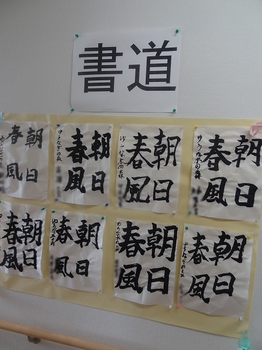 書道
朝日
春風
朝日
春風
朝日
春風
朝日
春風
朝日
春風
朝日
春風
朝日
春風
朝日
春風